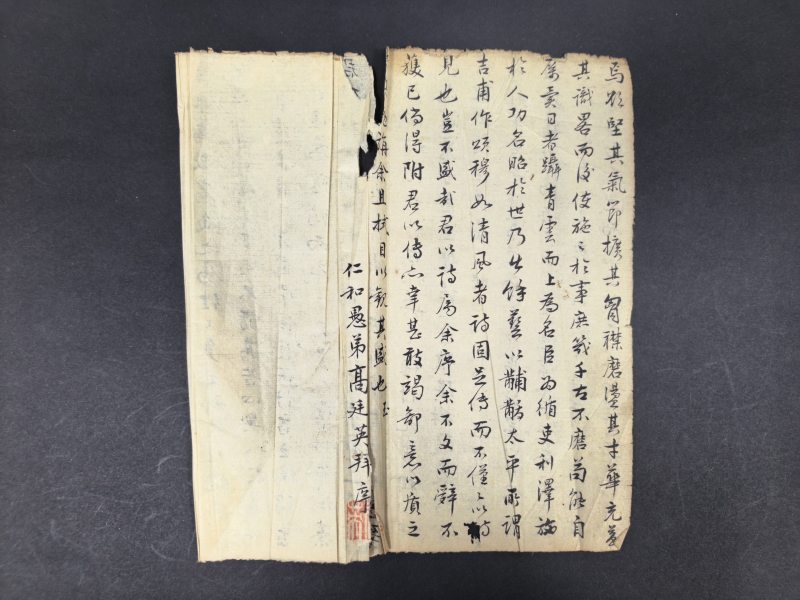 焉欲堅其氣節擴其胸襟磨盪其才華充養
其識畧而後使施之於事庶幾千古不磨苟能自
異日者躡青雲而上為名臣為循吏利澤施
於人功名昭於世乃出餘藝以黼黻太平所謂
吉甫作頌穆如清風者詩固足傳而不僅以詩
見也豈不盛哉君以詩屬余序余不文而辭不
獲已倘得附君以傳亦幸甚敢竭鄙意以質之
余且拭目以觀其盛也
仁和愚弟高廷英拜序